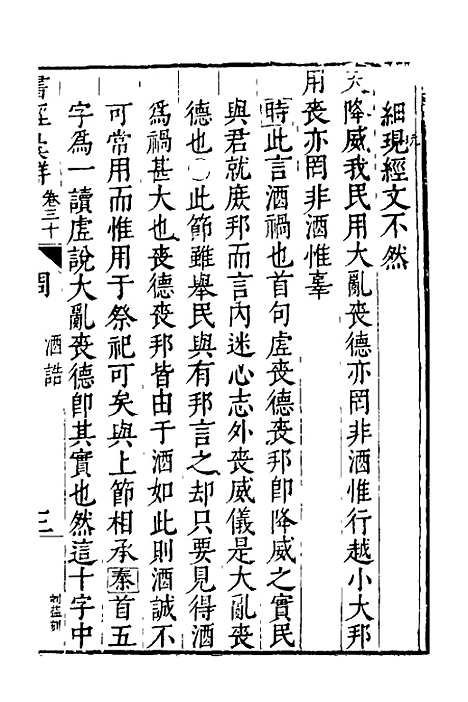 細現經文不然
天降威我民用大亂喪德亦罔非酒惟行越小大邦
用喪亦罔非酒惟辜
時此言酒禍也首句虛喪德喪邦卽降威之實民
與君就庶邦而言內迷心志外喪威儀是大亂喪
德也○此節雖舉民與有邦言之却只要見得酒
為禍甚大也喪德喪邦皆由于酒如此則酒誠不
可常用而惟用于祭祀可矣與上節相承秦首五
字為一讀虛說大亂喪德卽其實也然這十字中
書經集 卷三十 周 酒誥 三